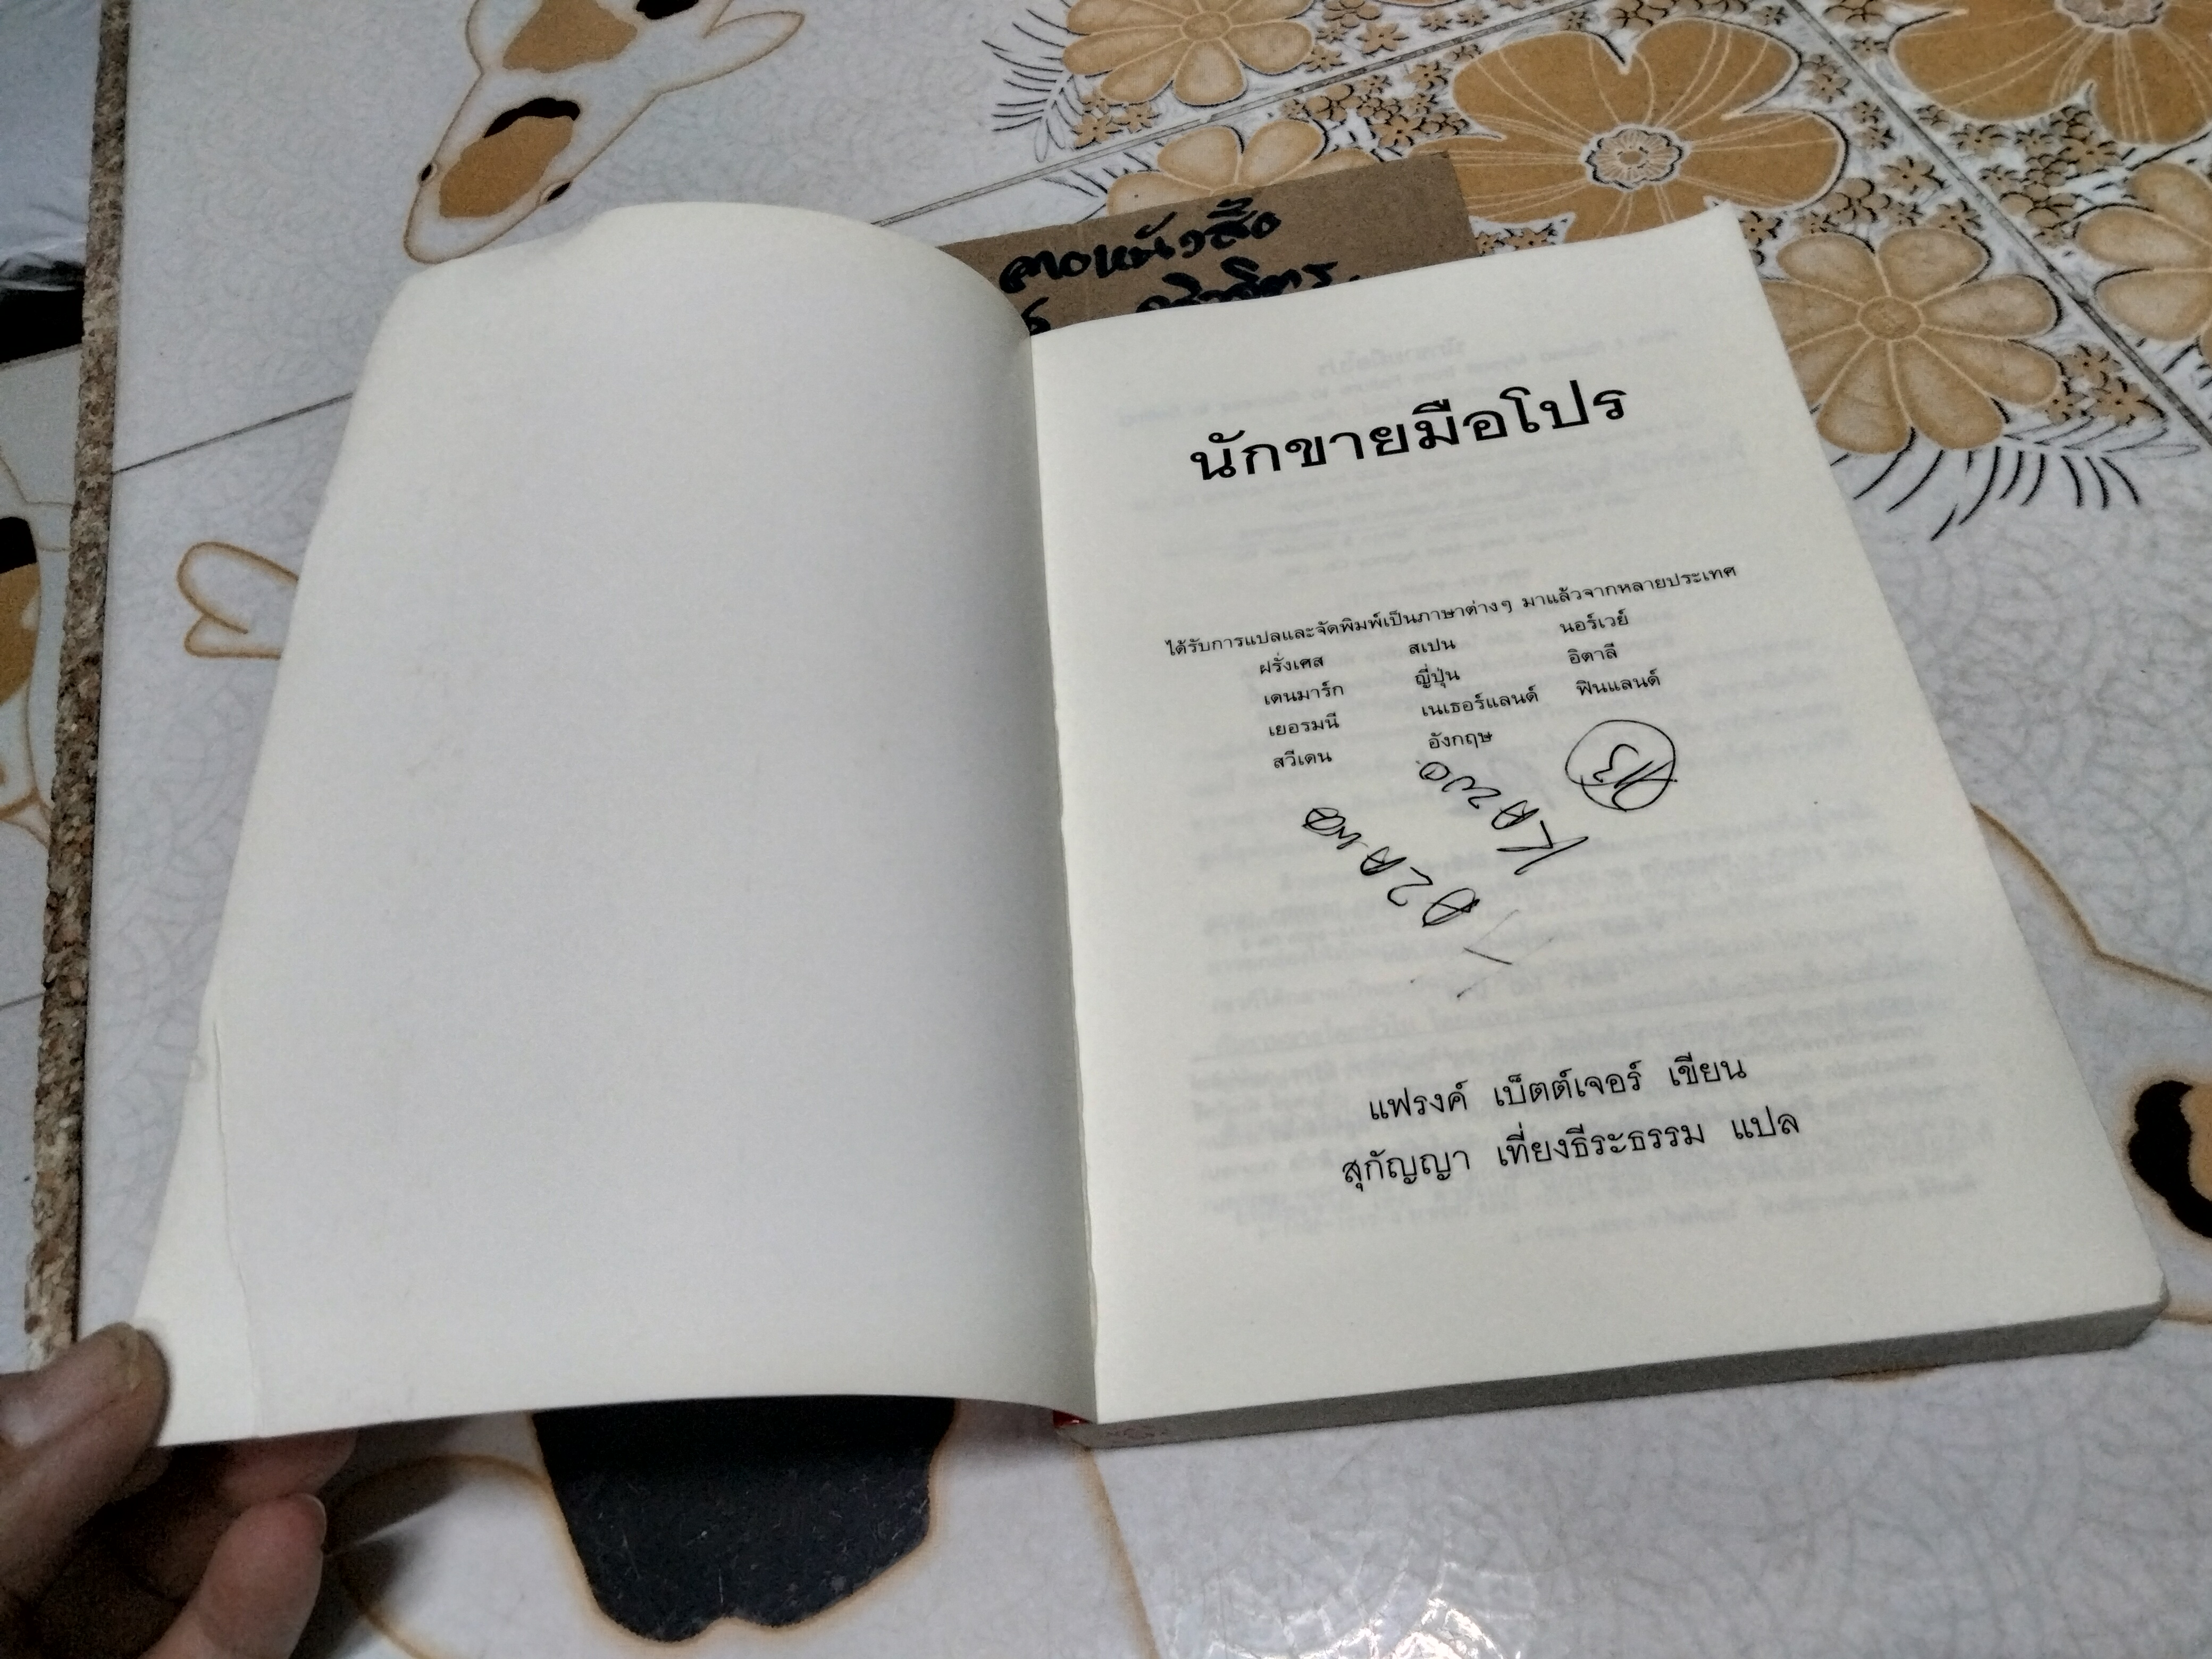 ลาดหนังสือ
นักขายมือโปร
ได้รับการแปลและจัดพิมพ์เป็นภาษาต่างๆ มาแล้วจากหลายประเทศ
ฝรั่งเศส สเปน นอร์เวย์
เดนมาร์ก ญี่ปุ่น อิตาลี
เยอรมนี เนเธอร์แลนด์ ฟินแลนด์
สวีเดน อังกฤษ
แฟรงค์ เบ็ตต์เจอร์ เขียน
สุกัญญา เที่ยงธีระธรรม แปล